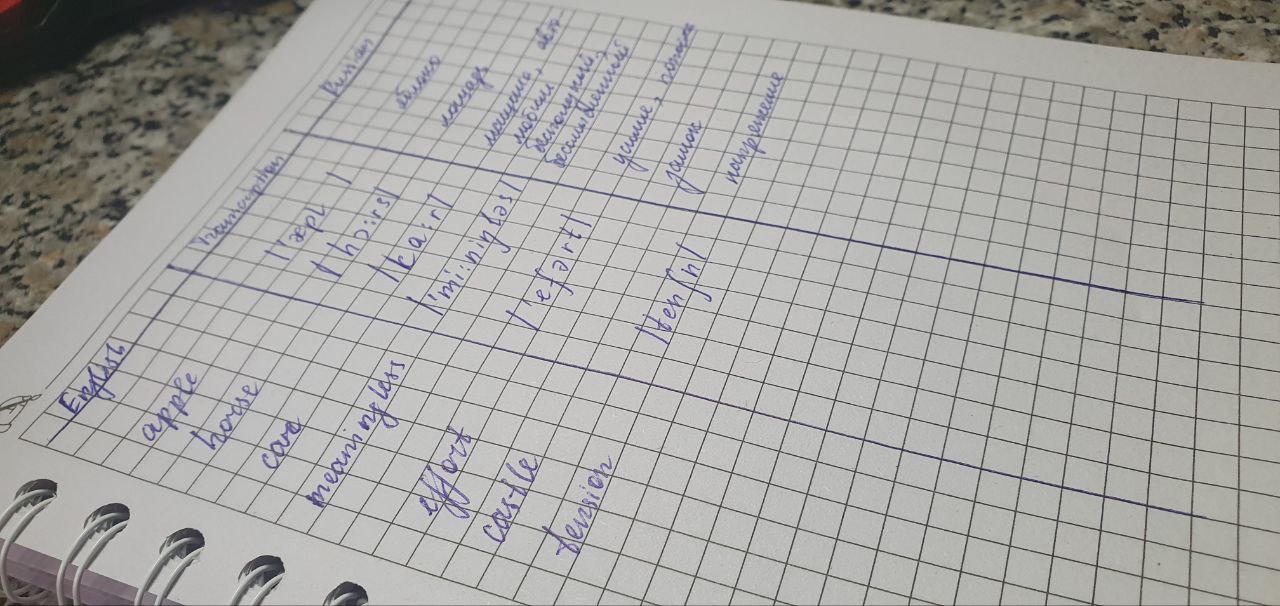 English Transcription Russian
apple |'æpl| яблоко
horse |hɔ:rs| лошадь
care |ka:r| машина, авто
meaningless |'mi:niŋləs| любой,
бессмысленный
effort |'efərt| усилие, попытка
castle замок
tension |tenʃn| напряжение